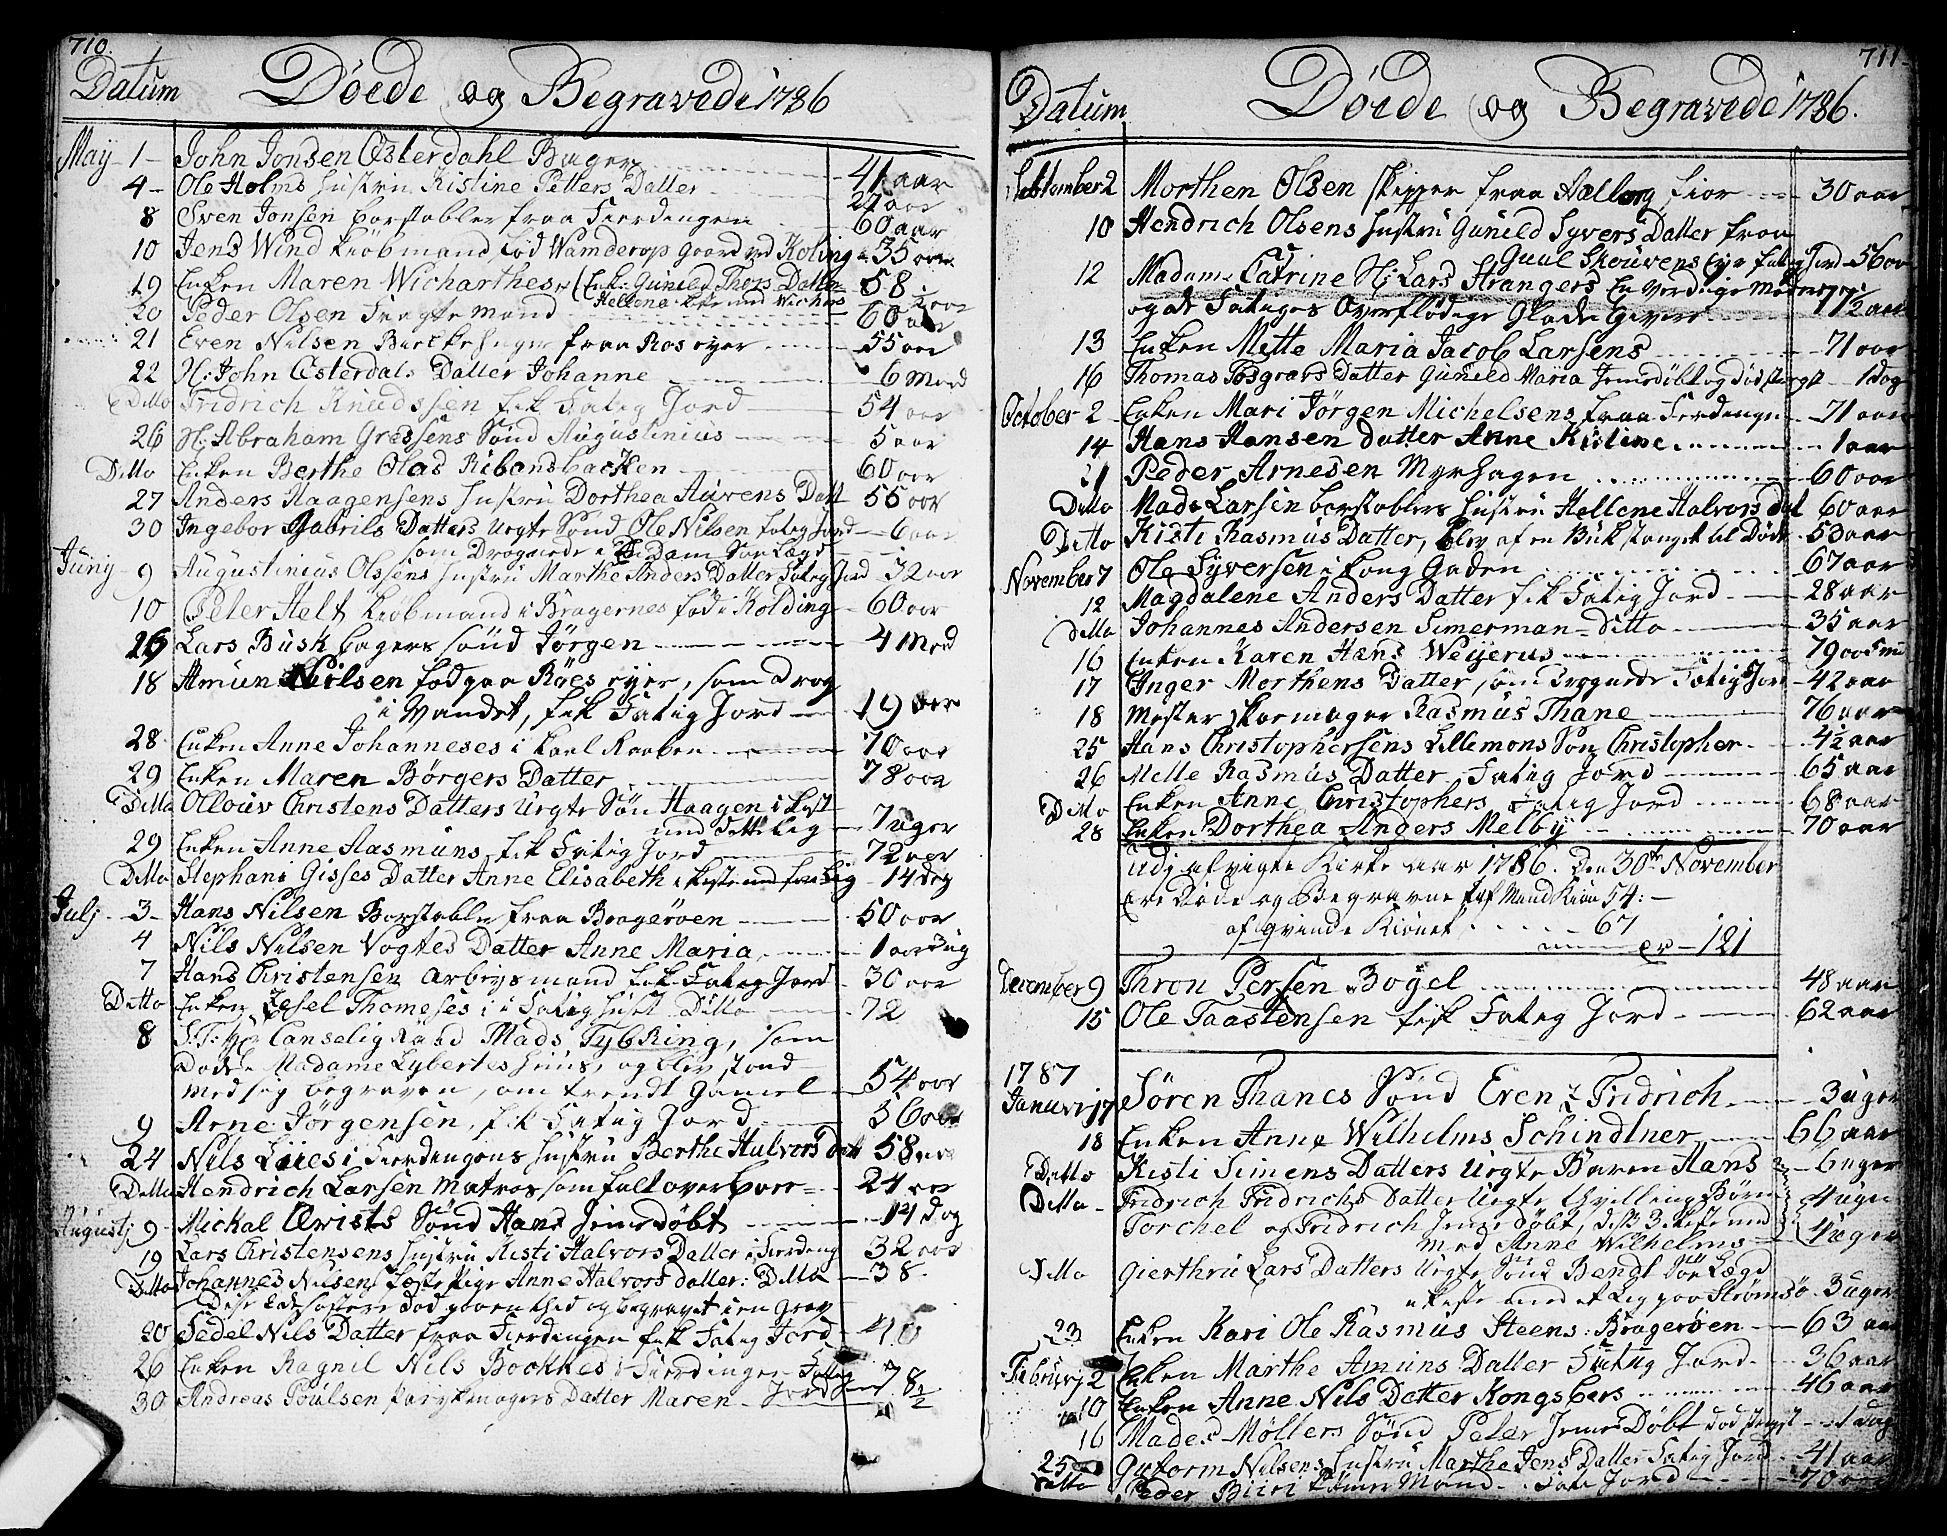 710.
Datum Döede og Begravede 1786
Maij 1 John Jonsen Østerdahl Bager 41 aar
4 Ole Holms hustru Kistine Petters Datter 27 aar
8 Sven Jonsen borstabler fraa Fierdingen 60 aar
10 Jens Wind kiöbmand fød Wamderop gaard ved Kolding 35 aar
19 Enken Maren Wicharthes (Enke: Gunild Thors Datter 58
20 Peder Olsen Fragtemand 60 aar
21 Even Nilsen fraa Röseyer 55 aar
22 H: John Østerdals Datter Johanne 6 Maed
Ditto Fridrich Knudssen fik Fatig Jord 54 aar
26 H: Abraham Gressens Sönd Augustinius 5 aar
Ditto Enken Berthe Olas Ribansbacken 60 aar
27 Anders Haagensens hustru Dorthea Aurens Datt 55 aar
30 Ingebor Gabrils Datters uegte Sönd Ole Nilsen fatig Jord 6 aar
som Drognede i Dam
Juny 9 Augustinius Olssens hustru Marthe Anders Datter Fatig Jord 32 aar
10 Peter Helt kiöbmand i Bragernes föd i Kolding 60 aar
16 Lars Busk bagers sönd Jörgen 4 Med
18 Amun Nielsen fød paa Röeseyer, som Drog
i Vandet, fik Fatig Jord 19 aar
28 Enken Anne Johanneses i 70 aar
29 Enken Maren Börgers Datter 78 aar
Ditto Ollouv Christens Datters uegte Sön Haagen i kist
med dette lig 7 uger
29 Enken Anne Aasmuns fik Fatig Jord 72 aar
Ditto Stephani Gisses Datter Anne Elisabeth 14 dag
Julj 3 Hans Nilsen Borstabler fraa Bragerøen 50 aar
4 Nils Nilsen Vogtes Datter Anne Maria 1 aar
7 Hans Christensen arbeysmand fik Fatig Jord 30 aar
Ditto Enken Zesel Thomeses i Fatighuset Ditto 72
8 S:T: Hr Canselig Raad Mads Tybring, som
Döde i Madame Lyberts huus, og blev stand
med sig begraven, om trendt gamel 54 aar
9 Arne Jörgensen, fik Fatig Jord 36 aar
24 Nils Liies i Fierdingens hustru Berthe Halvors datt 58 aar
Ditto Hendrich Larsen Matros som falt over bore 24 aar
Augustj 9 Mickal Qvists Sönd Hans Jemedöbt 14 dag
19 Lars Christensens hustru Kisti Halvors Datter i Fierding 32 aar
Ditto Johannes Nilsens Anne Halvors datter: Ditto 38
Dise söstere död paa en tiid og begravet i en grav
20 Sedel Nils Datter fraa Fierdingen fik Fatig Jord 40
26 Enken Ragnil Nils Bockkes i Fierdingen Fatig
Jord 78
30 Andreas Poulsen Parykmagers Datter Maren 1/2

711
Datum Döede og Begravede 1786.
September 2 Morthen Olsen skipper fraa Aalborg fior 30 aar
10 Hendrich Olsens hustru Gunild Syvers Datter fraa
Gaal Skouvens Eye fatig Jord 56 aar
12 Madame Catrine H: Lars Strangers En verdige Moder
og de Fatiges Overflödige Glade Giver 77 1/2 aar
13 Enken Mette Maria Jacob Larsens 71 aar
16 Thomas Fosgravs Datter Gunild Maria Jemedöbt og död straxt 1 dag
October 2 Enken Mari Jörgen Michelsens fraa Fierdingen 71 aar
14 Hans Hansen datter Anne Kistine 1 aar
21 Peder Arnesen Myrhagen 60 aar
Ditto Mads Larsen borstablers hustru Hellene Halvors dat 60 aar
Ditto Kisti Rasmus Datter, blev af en Buk stanget til Döde 50 aar
November 7 Ole Syversen i Long Gaden 67 aar
12 Magdalene Anders Datter fik Fatig Jord 28 aar
Ditto Johannes Andersen Simerman Ditto 35 aar
16 Enken Karen Hans Weyerus 79 aar
17 Inger Morthens Datter, som Drognede Fatig Jord 42 aar
18 Mester skormager Rasmus Thane 76 aar
25 Hans Christophersens Lillemons Sön Christopher 4 1/2 aar
26 Mette Rasmus Datter Fatig Jord 65 aar
Ditto Enken Anne Christophers Fatig Jord 68 aar
28 Enken Dorthea Anders Melby 70 aar
Udj afvigte Kirke aar 1786. Den 30te November
ere Döde og Begravne af Mand Kiön 54:
af qvinde Kiönet 67
er 121
December 9 Thron Persen Bogel 48 aar
15 Ole Taastensen fik Fatig Jord 62 aar
1787
Januari 17 Sören Thanes Sönd Even Fridrich 3 uger
18 Enken Anne Wilhelms Schindlner 66 aar
Ditto Kisti Simens Datters uegte Baren Hans 6 uger
Ditto Fridrich Fridrichs Datter uegte tvilling Börn 4 uger
Torchel og Fridrich Jemedöbt, disse 3 kiste ned
med Anne Wilhelms 4 uger
Ditto Gierthru Lars Datters uegte Sönd Bendt
i kiste med et Lig paa Strømsö 3 uger
23 Enken Kari Ole Rasmus Steens: Bragerøen 63 aar
Februarj 2 Enken Marthe Amuns Datter Fatig Jord 36 aar
10 Enken Anne Nils Datter Kongsbers 46 aar
16 Mades Möllers Sönd Peter Jeme Döbt död straxt 1 dag
25 Gutorm Nilsens hustru Marthe Jens Datter Fatig Jord 41 aar
Ditto Peder Mand Fati Jord 70 aar